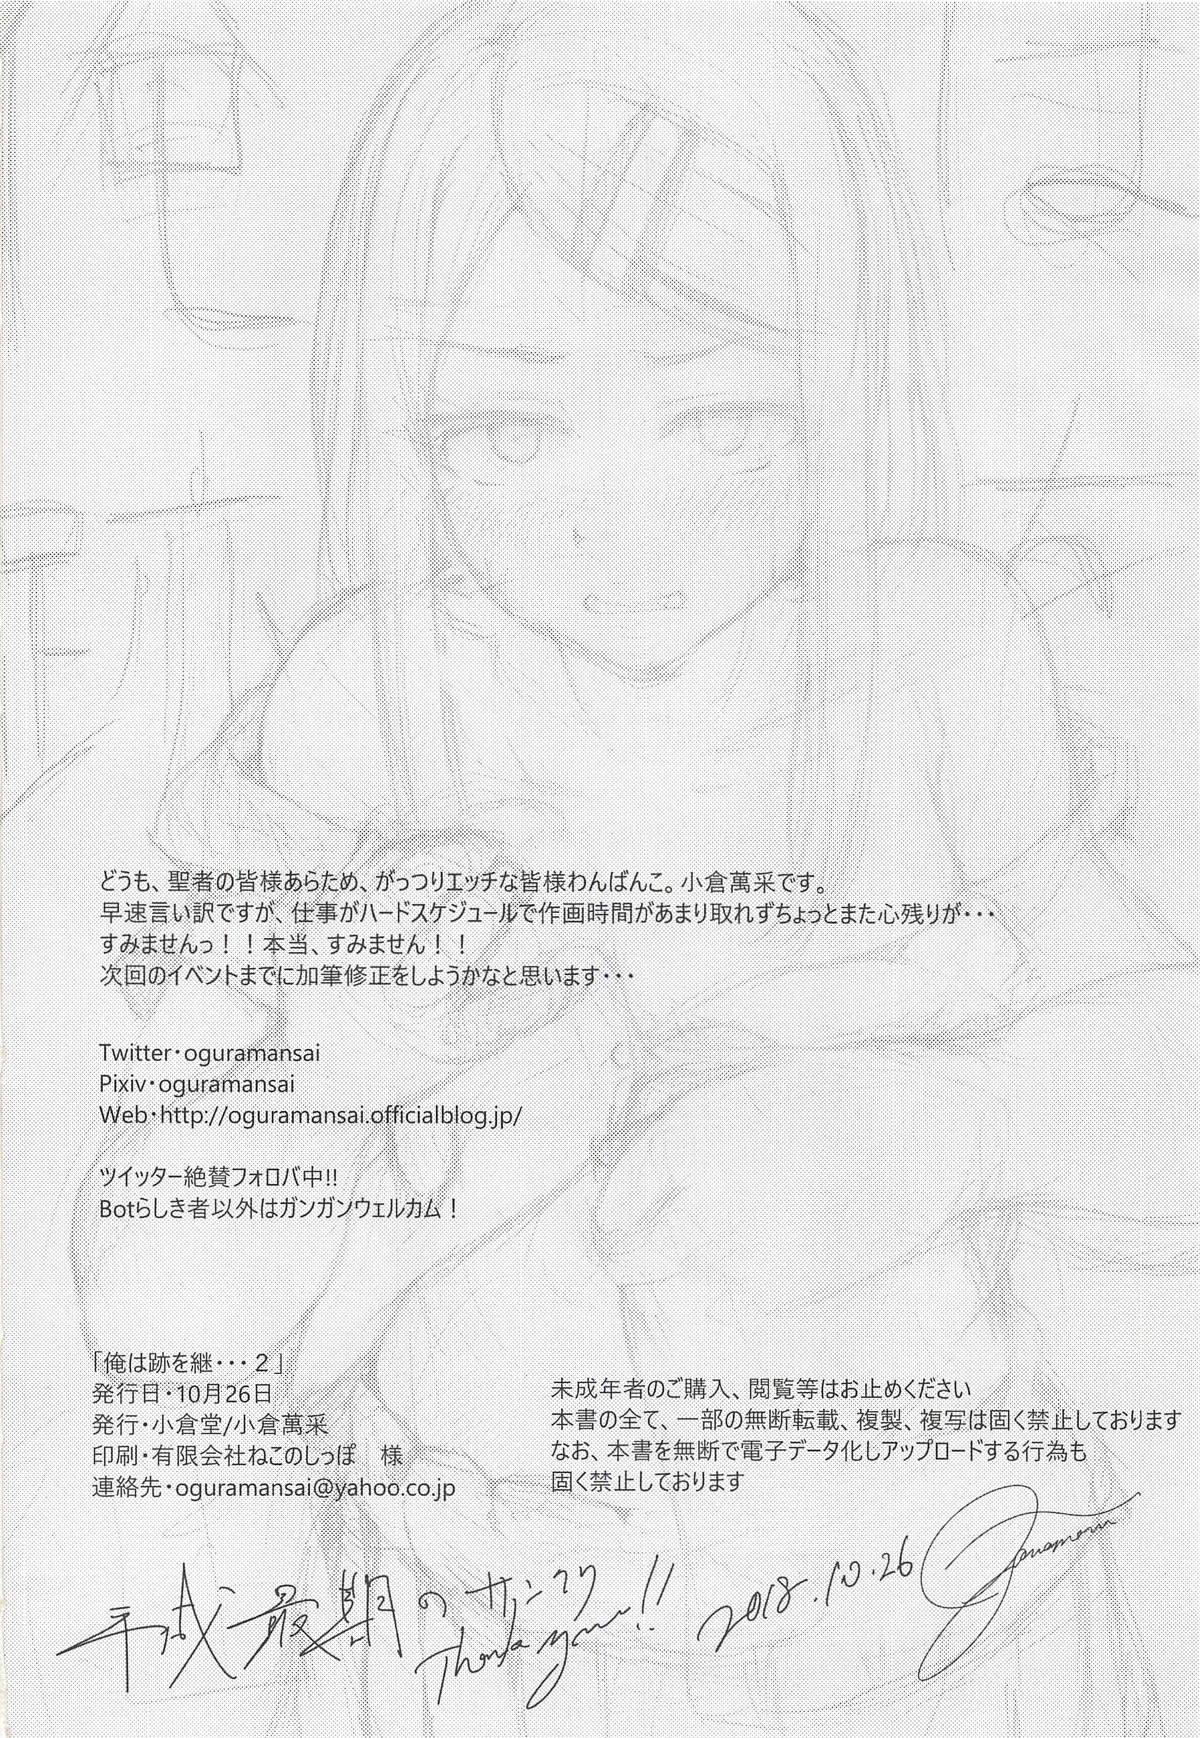 どうも、聖者の皆様あらため、がっつりエッチな皆様わんばんこ。小倉萬采です。
早速言い訳ですが、仕事がハードスケジュールで作画時間があまり取れずちょっとまた心残りが・・・
すみませんっ！！本当、すみません！！
次回のイベントまでに加筆修正をしようかなと思います・・・
Twitter・oguramansai
Pixiv・oguramansai
Web・http://oguramansai.officialblog.jp/
ツイッター絶賛フォロバ中!!
Botらしき者以外はガンガンウェルカム！
「俺は跡を継・・・２」
発行日・10月26日
発行・小倉堂/小倉萬采
印刷・有限会社ねこのしっぽ　様
連絡先・oguramansai@yahoo.co.jp
未成年者のご購入、閲覧等はお止めください
本書の全て、一部の無断転載、複製、複写は固く禁止しております
なお、本書を無断で電子データ化しアップロードする行為も
固く禁止しております
平成最期のサンクリ
Thank you!!
2018.10.26